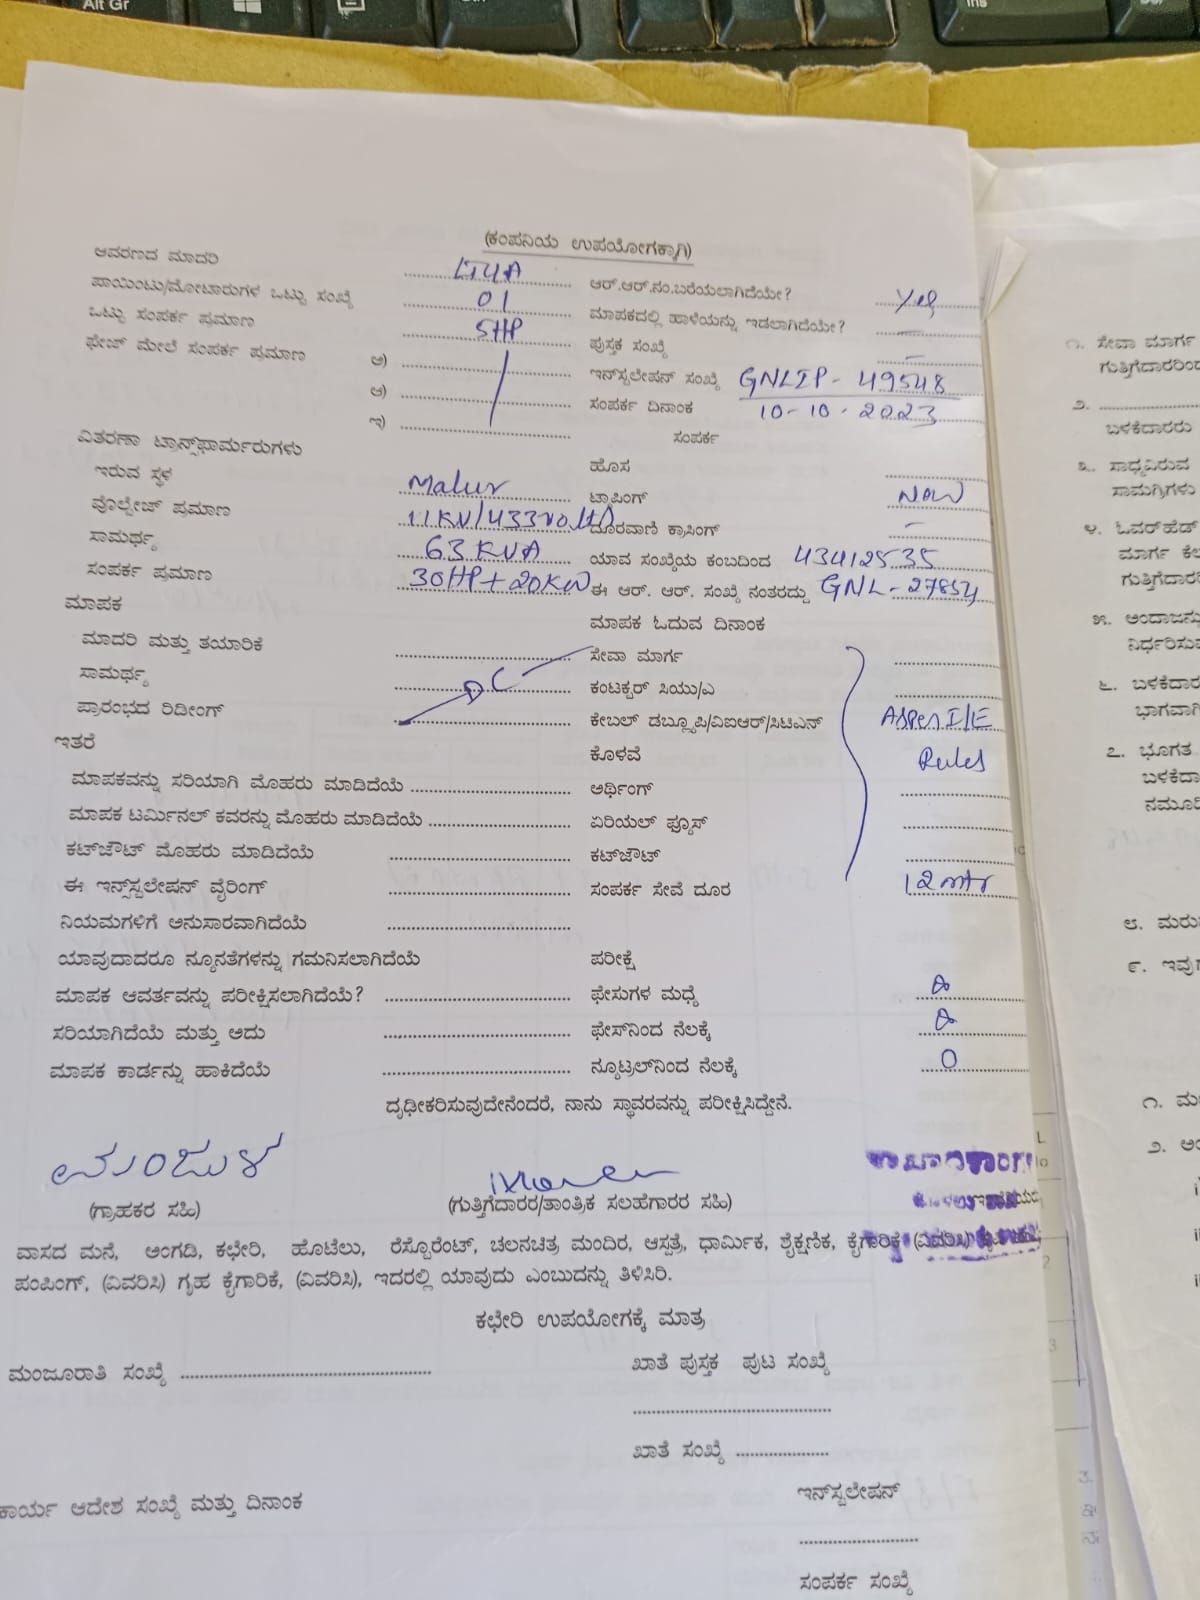 Alt Gr
Ins
(ಕಂಪನಿಯ ಉಪಯೋಗಕ್ಕಾಗಿ)
ಆವರಣದ ಮಾದರಿ LT4A ಆರ್.ಆರ್.ನಂ.ಬರೆಯಲಾಗಿದೆಯೇ? Yes
ಪಾಯಿಂಟು/ಮೋಟಾರುಗಳ ಒಟ್ಟು ಸಂಖ್ಯೆ 01 ಮಾಪಕದಲ್ಲಿ ಹಾಳೆಯನ್ನು ಇಡಲಾಗಿದೆಯೇ? —
ಒಟ್ಟು ಸಂಪರ್ಕ ಪ್ರಮಾಣ 5HP ಪುಸ್ತಕ ಸಂಖ್ಯೆ —
ಫೇಜ್ ಮೇಲೆ ಸಂಪರ್ಕ ಪ್ರಮಾಣ ಅ) ಇನ್‌ಸ್ಟಲೇಷನ್ ಸಂಖ್ಯೆ GNLIP - 49548
ಆ) ಸಂಪರ್ಕ ದಿನಾಂಕ 10-10-2023
ಇ) ಸಂಪರ್ಕ
ವಿತರಣಾ ಟ್ರಾನ್ಸ್‌ಫಾರ್ಮರುಗಳು ಹೊಸ
ಇರುವ ಸ್ಥಳ Malur ಟ್ಯಾಪಿಂಗ್ New
ವೊಲ್ಟೇಜ್ ಪ್ರಮಾಣ 11KV/433volts ದೂರವಾಣಿ ಕ್ರಾಸಿಂಗ್ —
ಸಾಮರ್ಥ್ಯ 63 KVA ಯಾವ ಸಂಖ್ಯೆಯ ಕಂಬದಿಂದ 43412535
ಸಂಪರ್ಕ ಪ್ರಮಾಣ 30HP+20KW ಈ ಆರ್. ಆರ್. ಸಂಖ್ಯೆ ನಂತರದ್ದು GNL-27854
ಮಾಪಕ ಮಾಪಕ ಓದುವ ದಿನಾಂಕ
ಮಾದರಿ ಮತ್ತು ತಯಾರಿಕೆ ಸೇವಾ ಮಾರ್ಗ
ಸಾಮರ್ಥ್ಯ DC ಕಂಟಕ್ಟರ್ ಸಿಯು/ಎ
ಪ್ರಾರಂಭದ ರಿಡೀಂಗ್ ಕೇಬಲ್ ಡಬ್ಲ್ಯೂಪಿ/ವಿಐಆರ್/ಸಿಟಿಎನ್ Asper I/E
ಇತರೆ ಕೊಳವೆ Rules
ಮಾಪಕವನ್ನು ಸರಿಯಾಗಿ ಮೊಹರು ಮಾಡಿದೆಯೆ ಅರ್ಥಿಂಗ್
ಮಾಪಕ ಟರ್ಮಿನಲ್ ಕವರನ್ನು ಮೊಹರು ಮಾಡಿದೆಯೆ ಏರಿಯಲ್ ಫ್ಯೂಸ್
ಕಟ್‌ಜೌಟ್ ಮೊಹರು ಮಾಡಿದೆಯೆ ಕಟ್‌ಜೌಟ್
ಈ ಇನ್ಸ್‌ಸ್ಟಲೇಷನ್ ವೈರಿಂಗ್ ಸಂಪರ್ಕ ಸೇವೆ ದೂರ 12 mtr
ನಿಯಮಗಳಿಗೆ ಅನುಸಾರವಾಗಿದೆಯೆ
ಯಾವುದಾದರೂ ನ್ಯೂನತೆಗಳನ್ನು ಗಮನಿಸಲಾಗಿದೆಯೆ ಪರೀಕ್ಷೆ
ಮಾಪಕ ಆವರ್ತವನ್ನು ಪರೀಕ್ಷಿಸಲಾಗಿದೆಯೆ? ಫೇಸುಗಳ ಮಧ್ಯೆ
ಸರಿಯಾಗಿದೆಯೆ ಮತ್ತು ಅದು ಫೇಸ್‌ನಿಂದ ನೆಲಕ್ಕೆ
ಮಾಪಕ ಕಾರ್ಡನ್ನು ಹಾಕಿದೆಯೆ ನ್ಯೂಟ್ರಲ್‌ನಿಂದ ನೆಲಕ್ಕೆ 0
ದೃಢೀಕರಿಸುವುದೇನೆಂದರೆ, ನಾನು ಸ್ಥಾವರವನ್ನು ಪರೀಕ್ಷಿಸಿದ್ದೇನೆ.
ಮಂಜುಳ
(ಗ್ರಾಹಕರ ಸಹಿ) (ಗುತ್ತಿಗೆದಾರರ/ತಾಂತ್ರಿಕ ಸಲಹೆಗಾರರ ಸಹಿ)
ವಾಸದ ಮನೆ, ಅಂಗಡಿ, ಕಛೇರಿ, ಹೊಟೆಲು, ರೆಸ್ಟೊರೆಂಟ್, ಚಲನಚಿತ್ರ ಮಂದಿರ, ಆಸ್ಪತ್ರೆ, ಧಾರ್ಮಿಕ, ಶೈಕ್ಷಣಿಕ, ಕೈಗಾರಿಕೆ (ವಿವರಿಸಿ)
ಪಂಪಿಂಗ್, (ವಿವರಿಸಿ) ಗೃಹ ಕೈಗಾರಿಕೆ, (ವಿವರಿಸಿ), ಇದರಲ್ಲಿ ಯಾವುದು ಎಂಬುದನ್ನು ತಿಳಿಸಿರಿ.
ಕಛೇರಿ ಉಪಯೋಗಕ್ಕೆ ಮಾತ್ರ
ಮಂಜೂರಾತಿ ಸಂಖ್ಯೆ ಖಾತೆ ಪುಸ್ತಕ ಪುಟ ಸಂಖ್ಯೆ
ಖಾತೆ ಸಂಖ್ಯೆ
ಕಾರ್ಯ ಆದೇಶ ಸಂಖ್ಯೆ ಮತ್ತು ದಿನಾಂಕ ಇನ್‌ಸ್ಟಲೇಷನ್
ಸಂಪರ್ಕ ಸಂಖ್ಯೆ
೧. ಸೇವಾ ಮಾರ್ಗ
೨.
ಬಳಕೆದಾರರು
೩. ಸಾಧ್ಯವಿರುವ
ಸಾಮಗ್ರಿಗಳು
೪. ಓವರ್‌ಹೆಡ್
೫.
೬.
೭. ಭೂಗತ
೮.
೯.
೧.
೨.